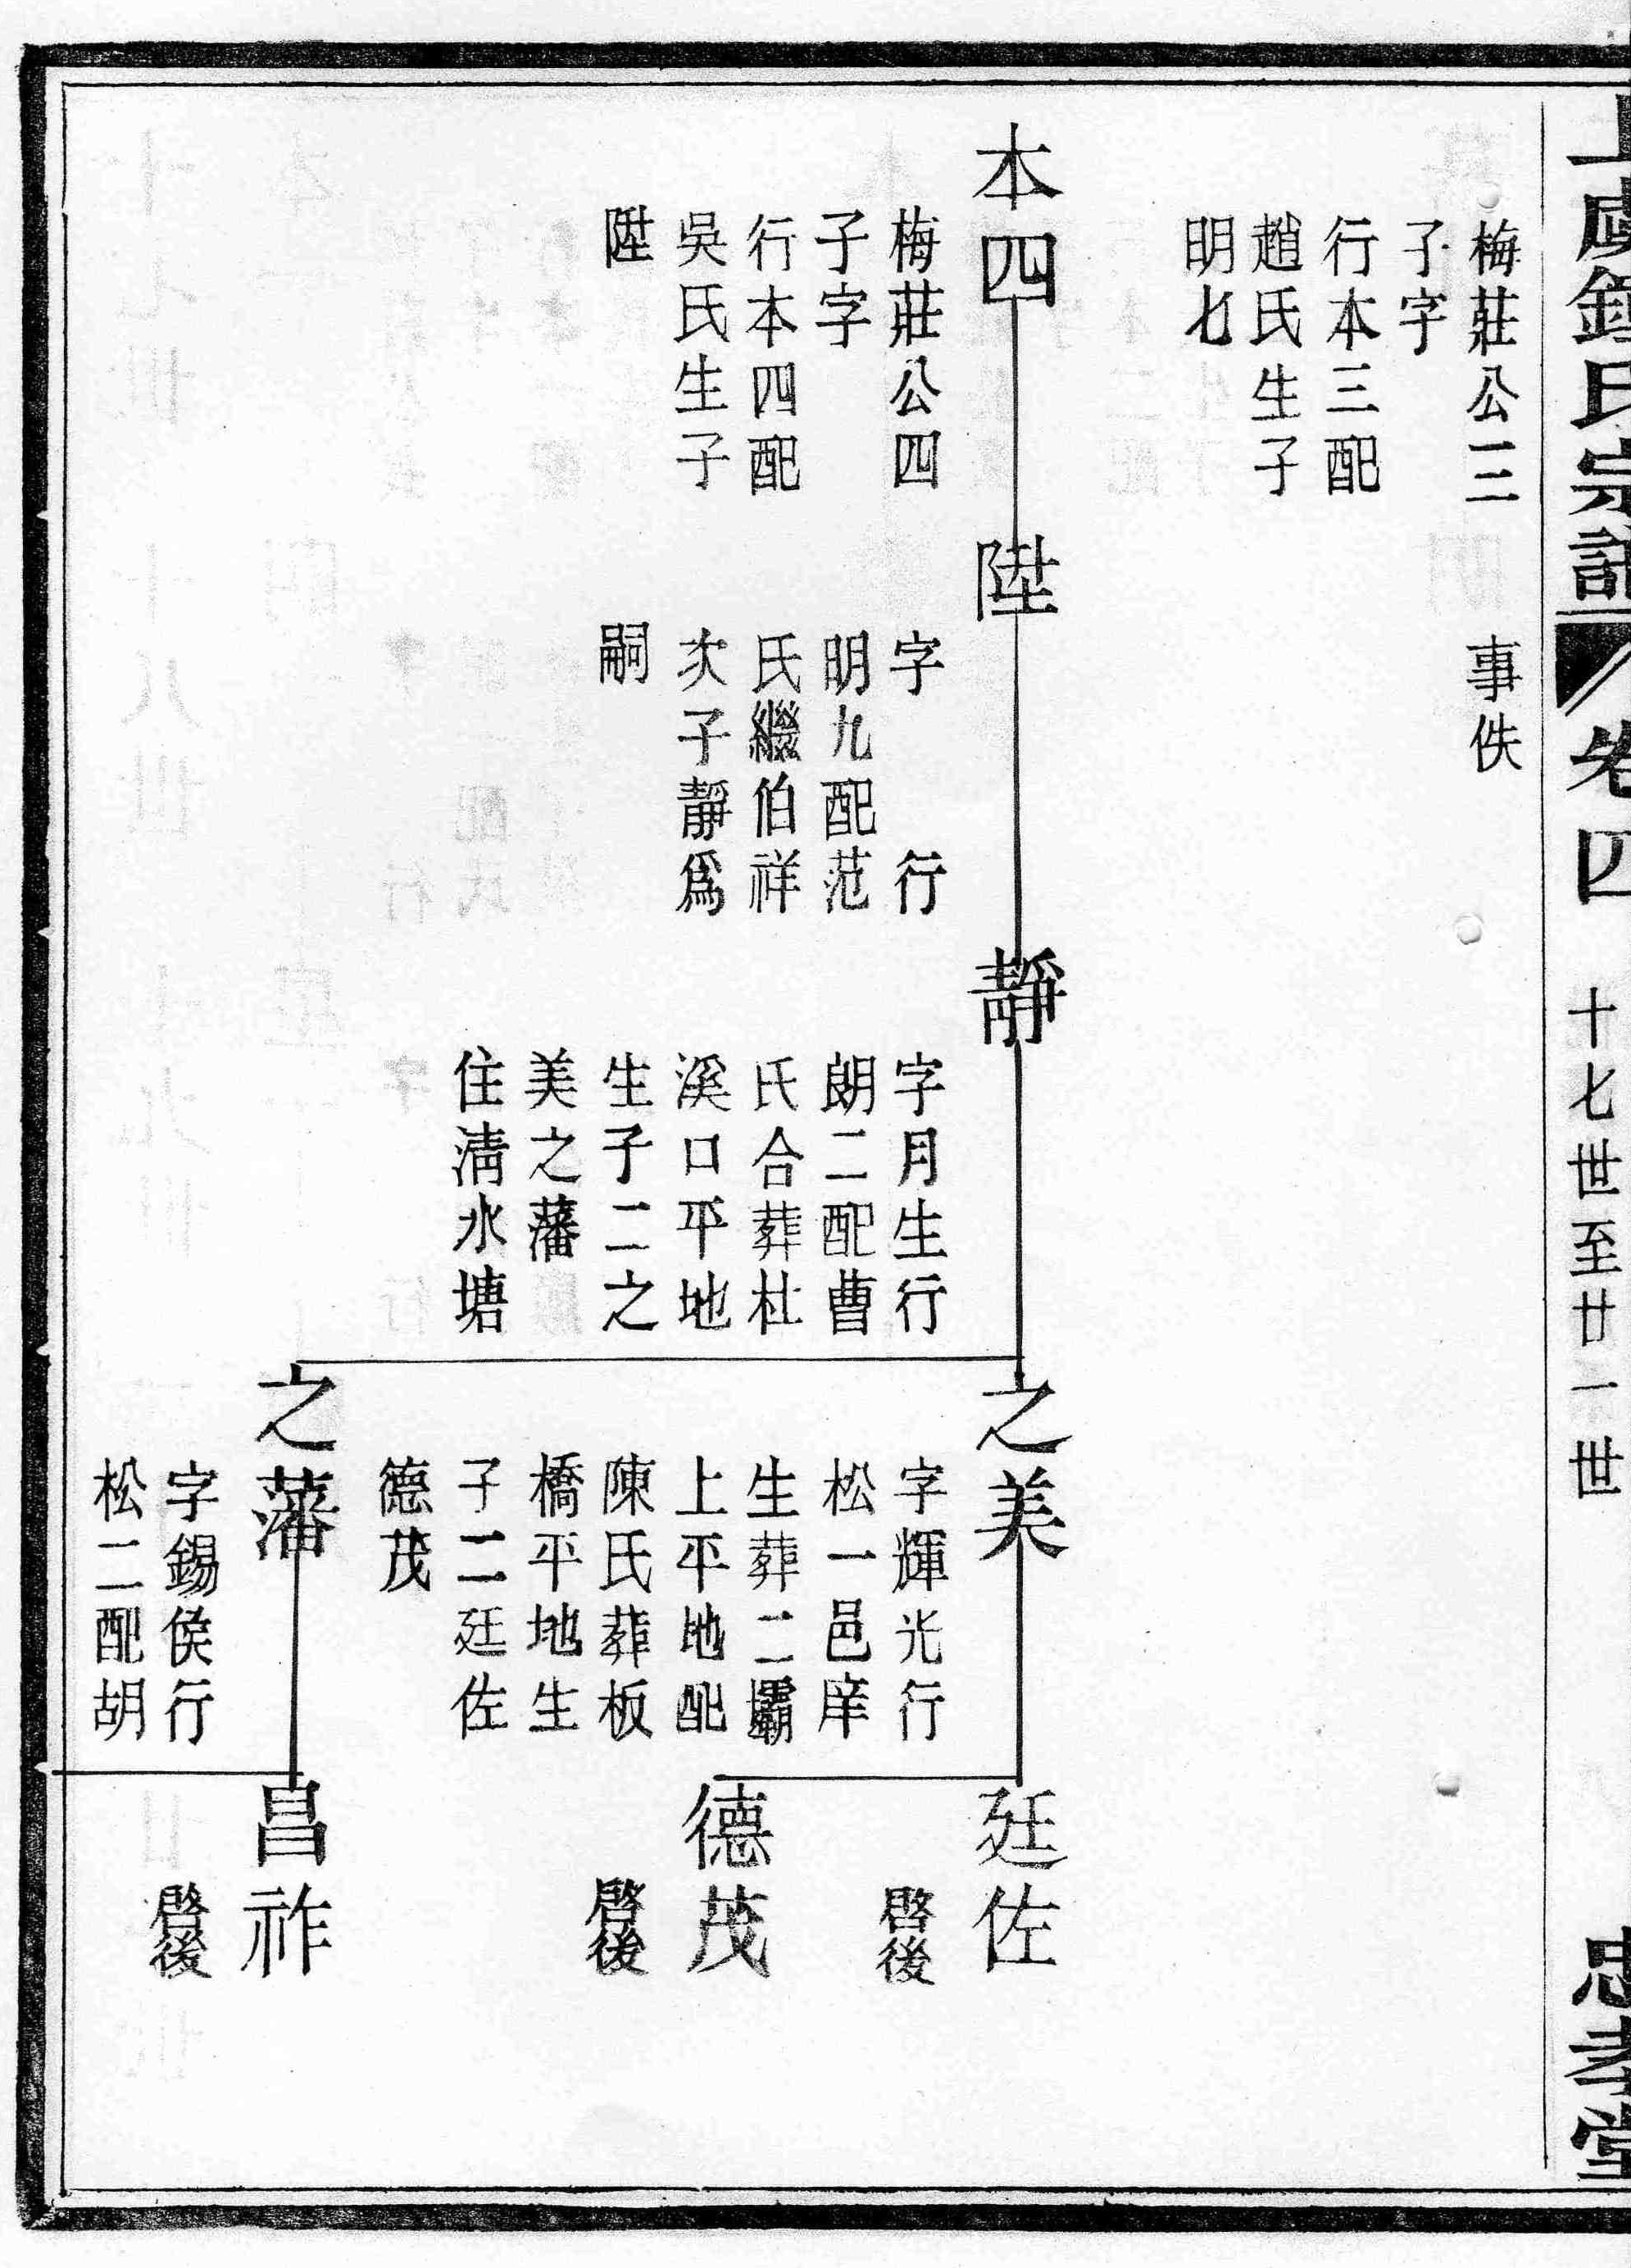 上虞鍾氏宗譜 卷四 十七世至廿一世 忠孝堂
梅莊公三
子字
行本三配
趙氏生子
明七
事佚
本四
梅莊公四
子字
行本四配
吳氏生子
陞
陞
字 行
明九配范
氏繼伯祥
次子靜爲
嗣
靜
字月生行
朗二配曹
氏合葬杜
溪口平地
生子二之
美之藩
住淸水塘
之美
字輝光行
松一邑庠
生葬二壩
上平地配
陳氏葬板
橋平地生
子二廷佐
德茂
廷佐
啓後
德茂
啓後
之藩
字錫侯行
松二配胡
昌祚
啓後